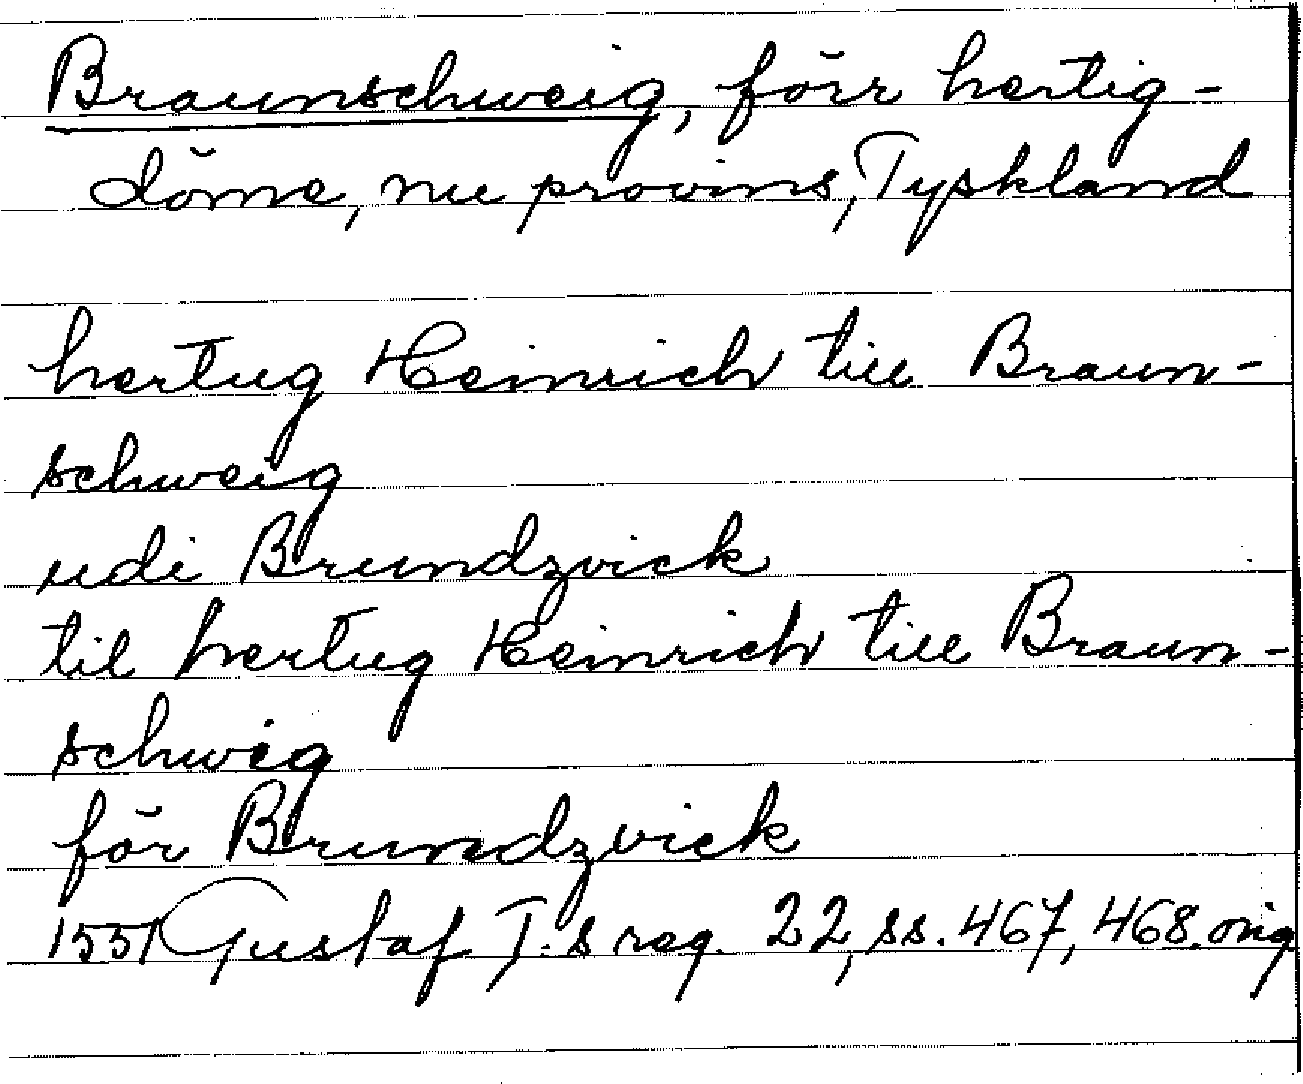 Braunschweig, förr hertig-
döme, nu provins, Tyskland
hertug Heinrich till Braun-
schweig
udi Brundzvick
til hertug Heinrich till Braun-
schwig
för Brundzvick
1551 Gustaf I:s reg. 22, ss. 467, 468. orig